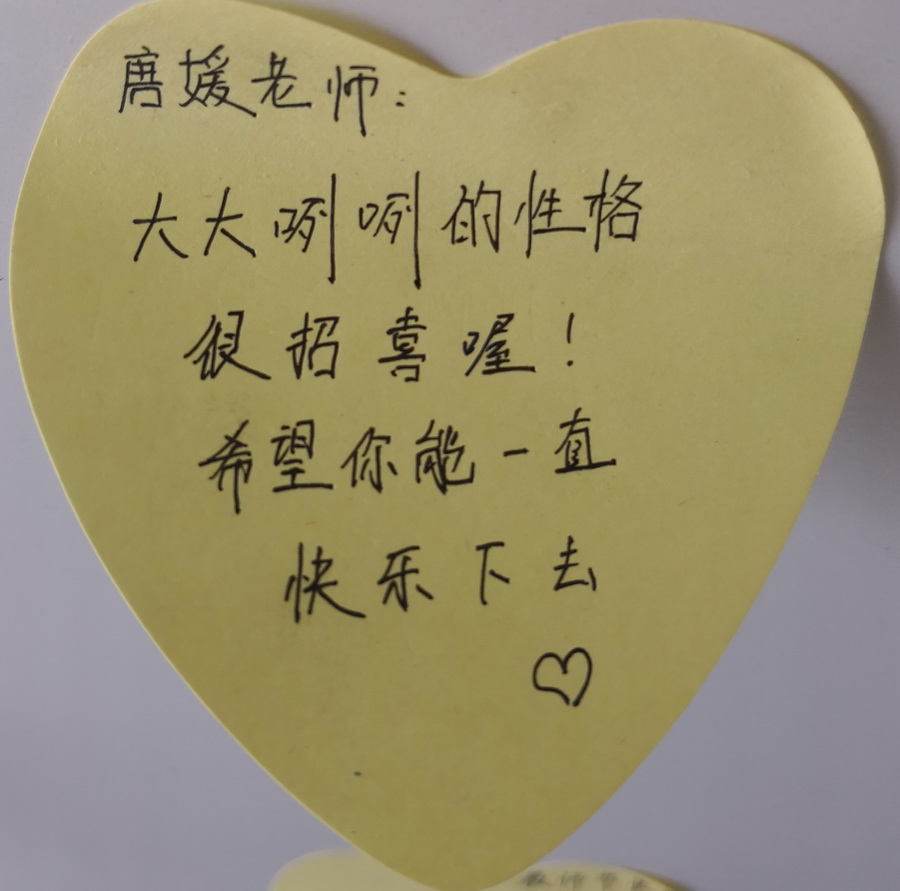 唐媛老师：
大大咧咧的性格
很招喜喔！
希望你能一直
快乐下去